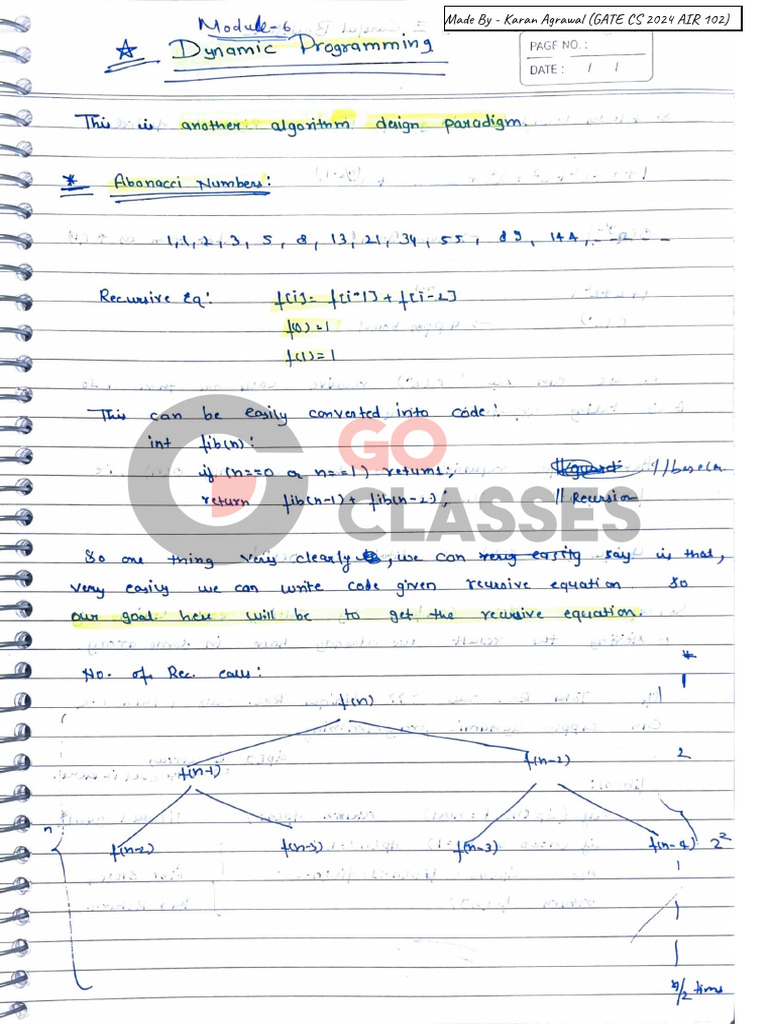 Made By - Karan Agrawal (GATE CS 2024 AIR 102)
Module-6
Dynamic Programming
PAGE NO.:
DATE: / /
This is another algorithm design paradigm.
* Abonacci Numbers:
1,1,2,3,5,8,13,21,34,55,89,144,------
Recursive Eq: f[i]= f[i-1]+f[i-2]
f(0)=1
f(1)=1
This can be easily converted into code:
int fib(n):
if (n==0 or n==1) return 1;
return fib(n-1)+fib(n-2); // Recursion
GO
CLASSES
So one thing very clearly, we can very easily say is that,
very easily we can write code given recursive equation so
our goal here will be to get the recursive equation.
No. of Rec. calls: *
f(n) 1
f(n-1) f(n-2) 2
n f(n-2) f(n-3) f(n-3) f(n-4) 2²
n/2 times